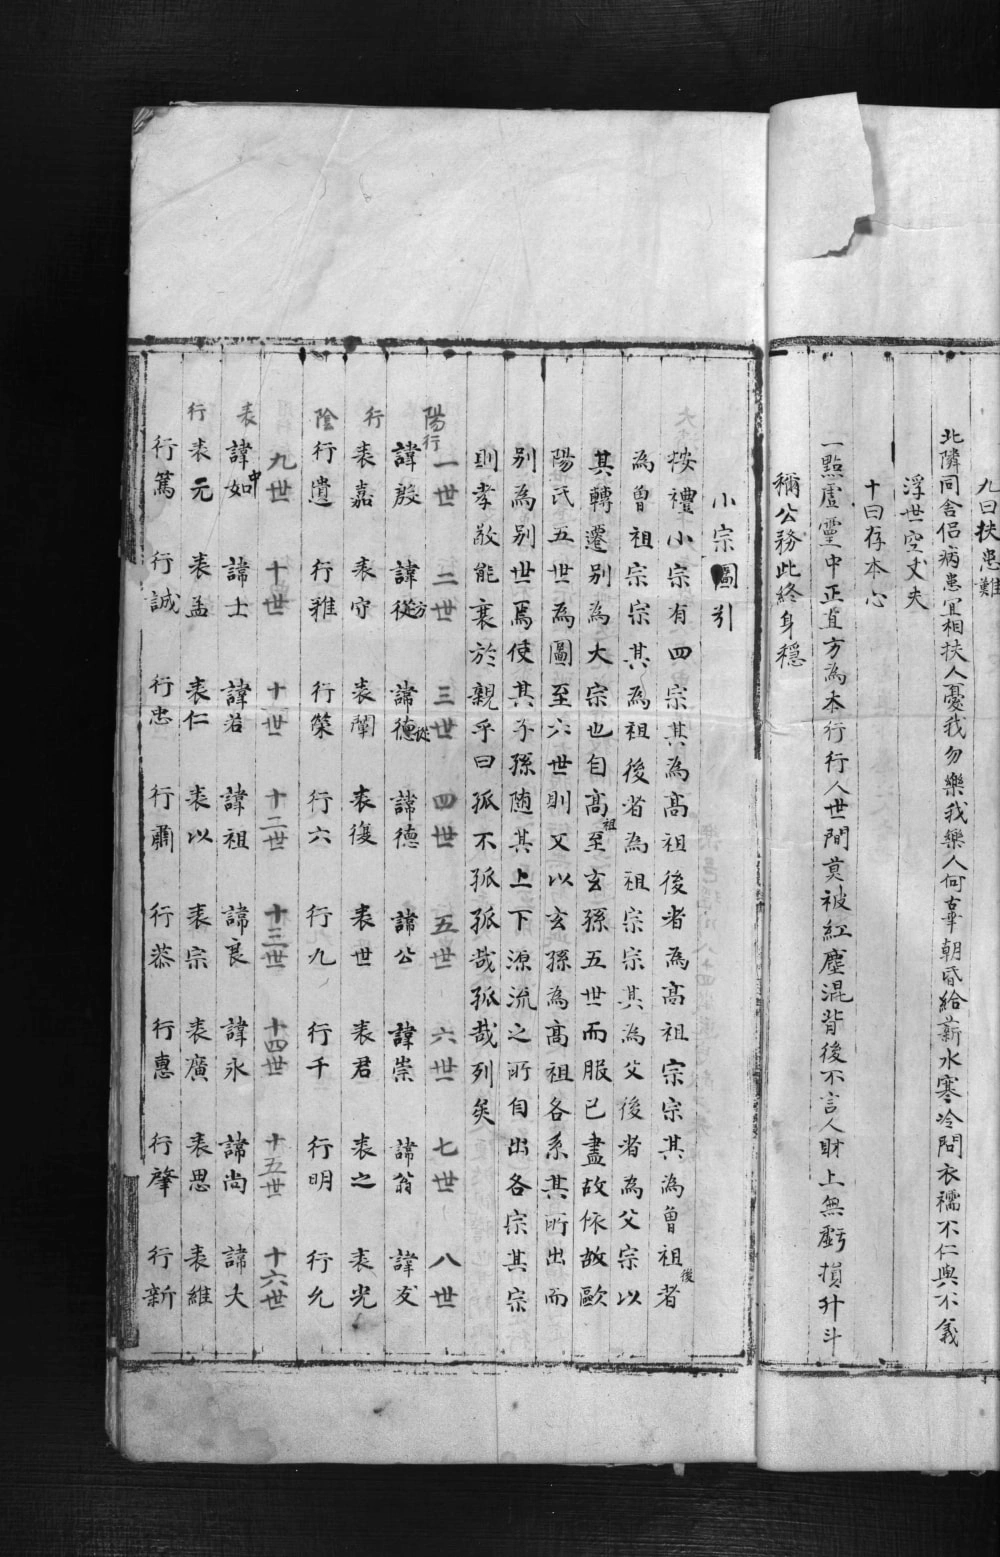 九曰扶患難
北隣同舍侶病患宜相扶人憂我勿樂我樂人何事朝昏給薪水寒冷問衣襦不仁與不義
浮世空丈夫
十曰存本心
一點虛靈中正直方為本行行人世間莫被紅塵混背後不言人財上無虧損升斗
稱公務此終身穩
小宗圖引
按禮小宗有四宗其為高祖後者為高祖宗宗其為曾祖後者
為曾祖宗宗其為祖後者為祖宗宗其為父後者為父宗以
其轉遷别為大宗也自高祖至玄孫五世而服已盡故依故歐
陽氏五世為圖至六世則又以玄孫為高祖各系其所出而
别為别世焉使其子孫随其上下源流之所自出各宗其宗
則孝敬能衰於親乎曰孤不孤孤哉孤哉列矣
陽行 一世 二世 三世 四世 五世 六世 七世 八世
諱殷 諱從方 諱德從 諱德 諱公 諱崇 諱翁 諱友
行 表嘉 表守 表闡 表復 表世 表君 表之 表光
陰 行遺 行雅 行榮 行六 行九 行千 行明 行允
九世 十世 十一世 十二世 十三世 十四世 十五世 十六世
表 諱如中 諱士 諱若 諱祖 諱良 諱永 諱尚 諱夫
行 表元 表孟 表仁 表以 表宗 表廣 表思 表維
行篤 行誠 行忠 行肅 行恭 行惠 行肇 行新